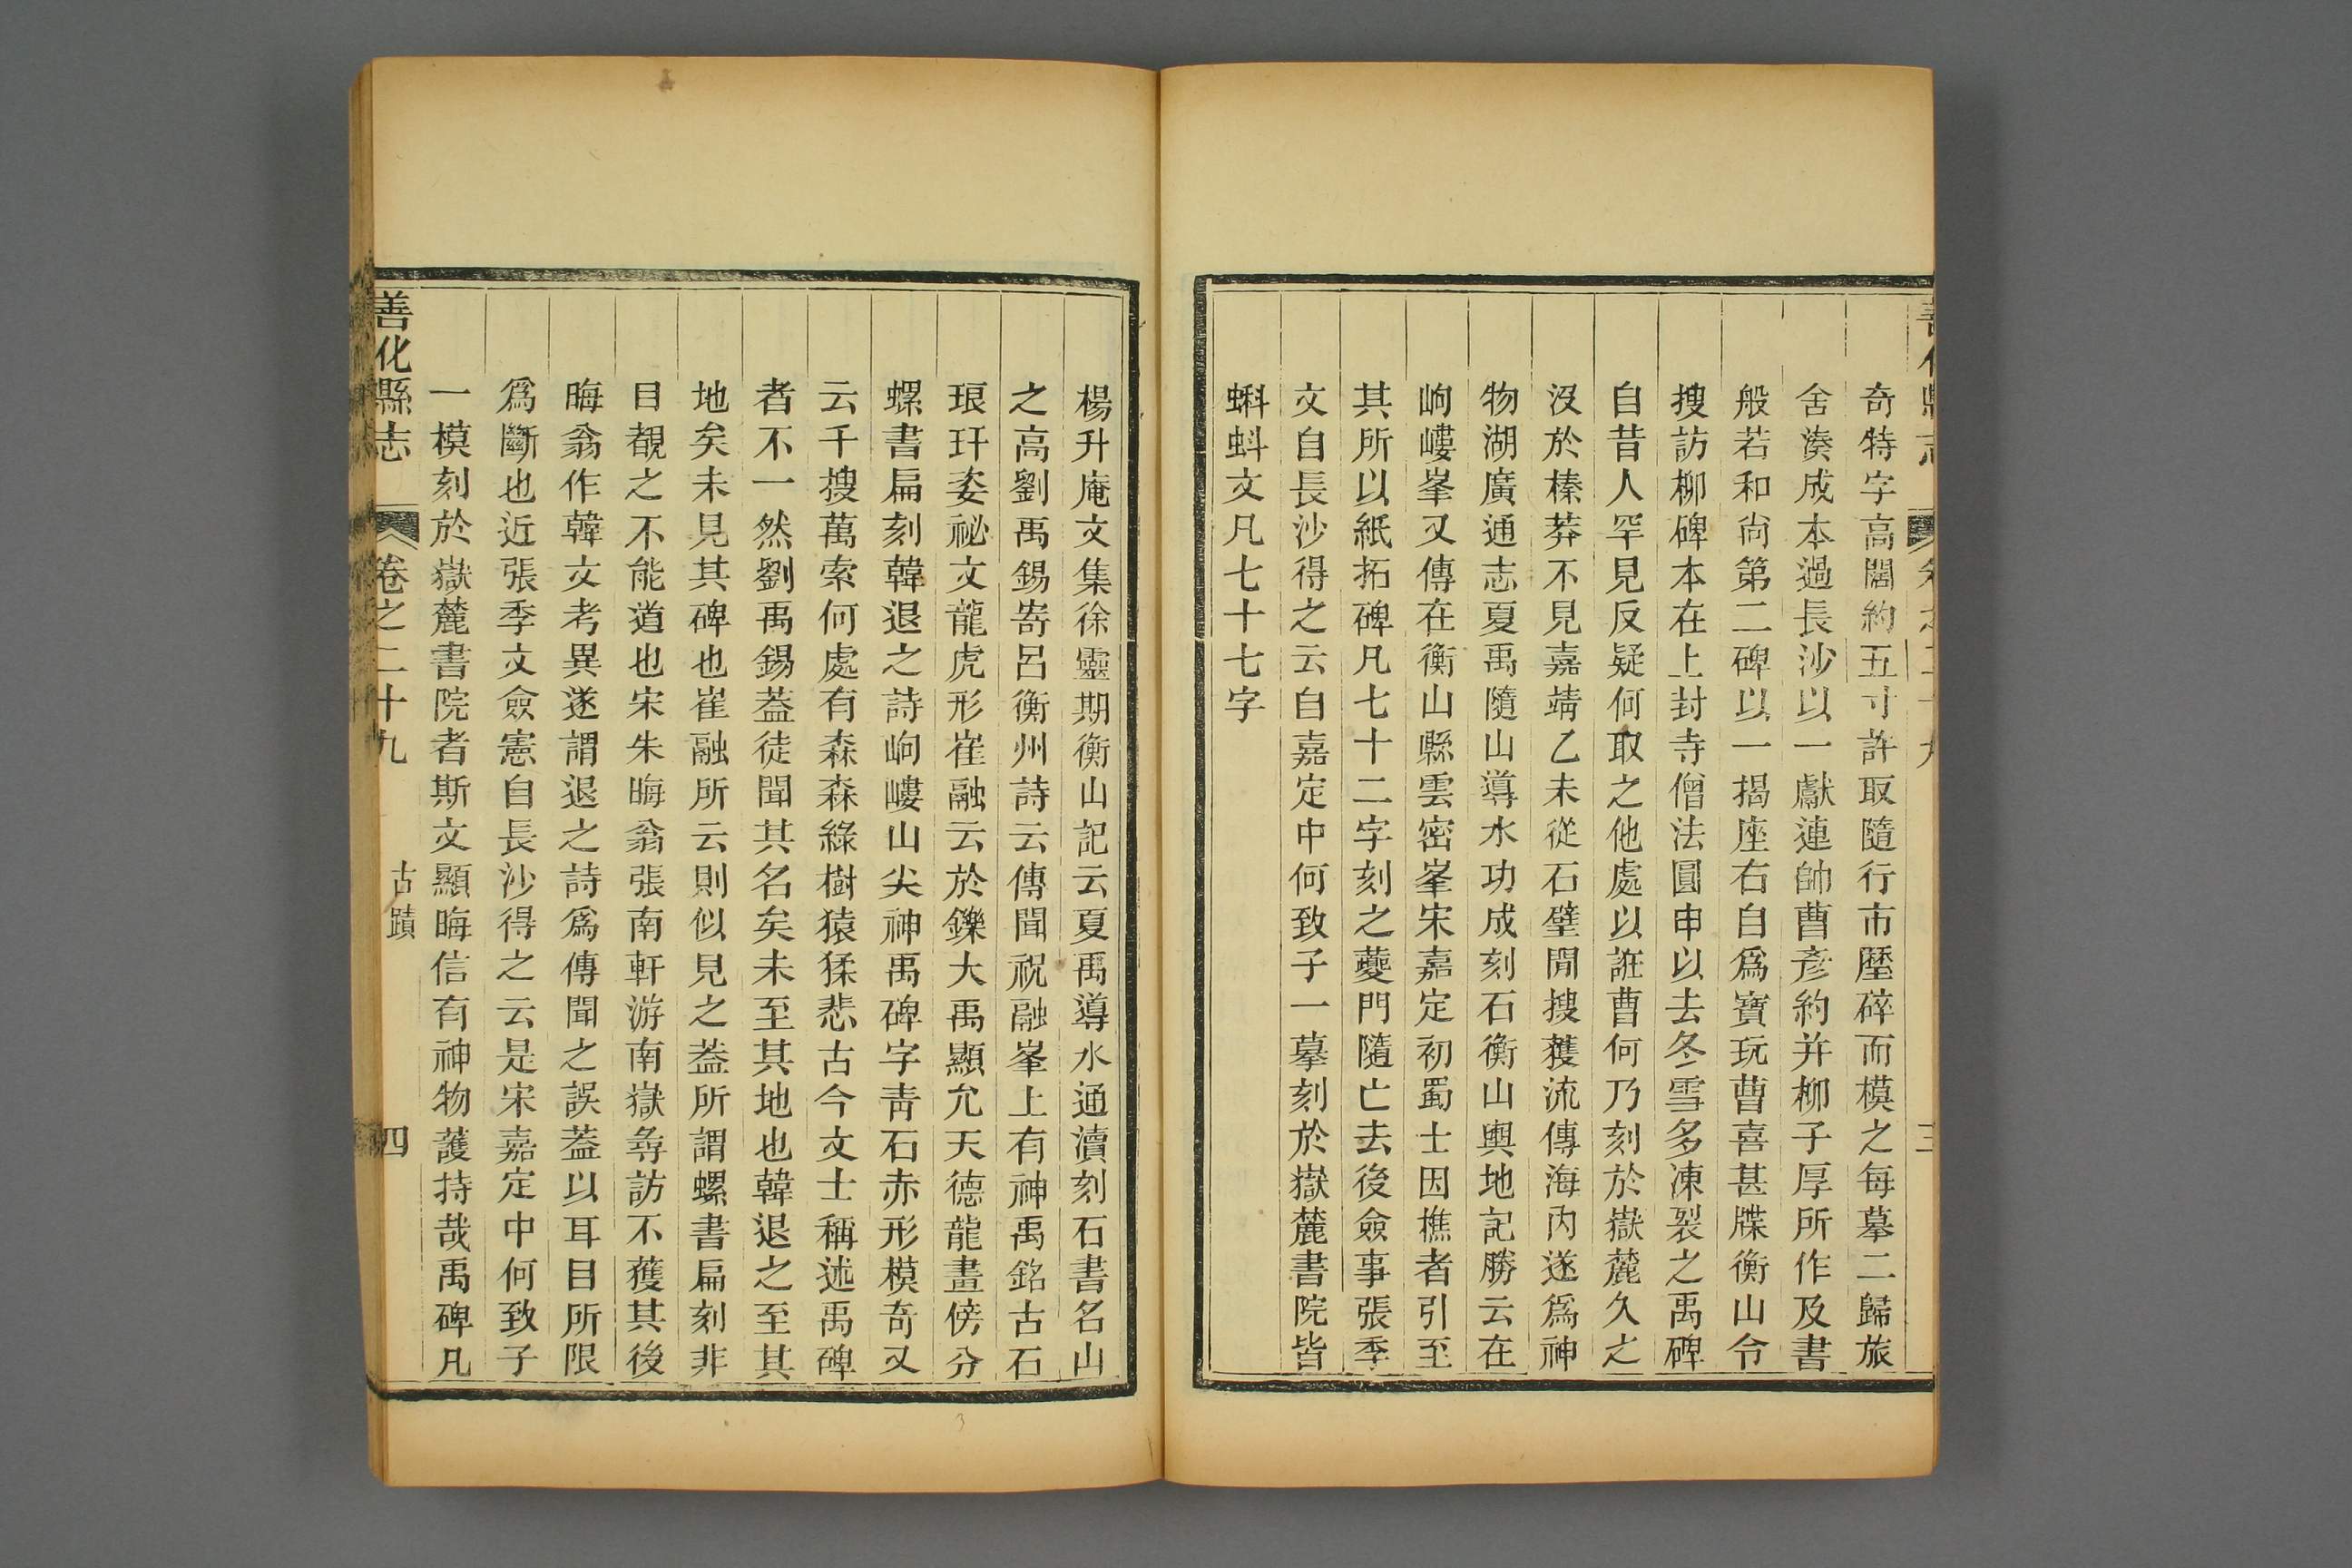 奇特字高闊約五寸許取隨行市歷碎而模之每摹二歸旅
舍湊成本過長沙以一獻連帥曹彥約并柳子厚所作及書
般若和尚第二碑以一揭座右自爲寶玩曹喜甚牒衡山令
搜訪柳碑本在上封寺僧法圓申以去冬雪多凍裂之禹碑
自昔人罕見反疑何取之他處以誑曹何乃刻於嶽麓久之
沒於榛莽不見嘉靖乙未從石壁閒搜獲流傳海內遂爲神
物湖廣通志夏禹隨山導水功成刻石衡山輿地記勝云在
岣嶁峯又傳在衡山縣雲密峯宋嘉定初蜀士因樵者引至
其所以紙拓碑凡七十二字刻之夔門隨亡去後僉事張季
文自長沙得之云自嘉定中何致子一摹刻於嶽麓書院皆
蝌蚪文凡七十七字
楊升庵文集徐靈期衡山記云夏禹導水通瀆刻石書名山
之高劉禹錫寄呂衡州詩云傳聞祝融峯上有神禹銘古石
琅玕姿祕文龍虎形崔融云於鑠大禹顯允天德龍畫傍分
螺書扁刻韓退之詩岣嶁山尖神禹碑字靑石赤形模奇又
云千搜萬索何處有森森綠樹猿猱悲古今文士稱述禹碑
者不一然劉禹錫蓋徒聞其名矣未至其地也韓退之至其
地矣未見其碑也崔融所云則似見之蓋所謂螺書扁刻非
目覩之不能道也宋朱晦翁張南軒游南嶽尋訪不獲其後
晦翁作韓文考異遂謂退之詩爲傳聞之誤蓋以耳目所限
爲斷也近張季文僉憲自長沙得之云是宋嘉定中何致子
一模刻於嶽麓書院者斯文顯晦信有神物護持哉禹碑凡
善化縣志 卷之二十九 古蹟 四